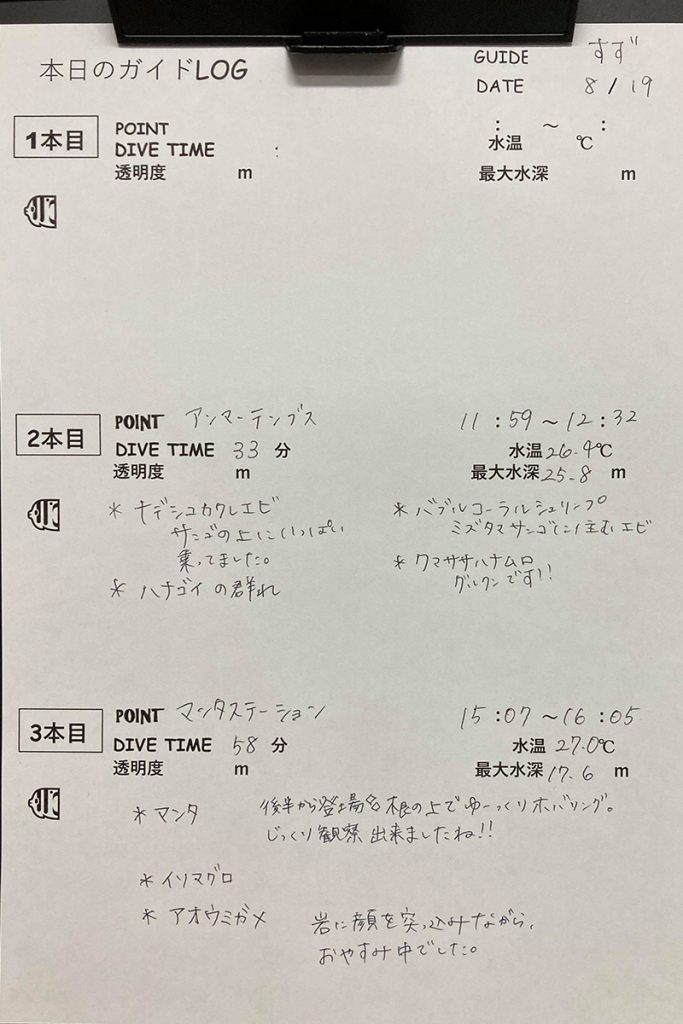 本日のガイドLOG
GUIDE すず
DATE 8/19
1本目
POINT : ～ :
DIVE TIME : 水温 ℃
透明度 m 最大水深 m
2本目
POINT アンマーテンブス 11:59～12:32
DIVE TIME 33 分 水温 26.4℃
透明度 m 最大水深 25.8 m
* ナデシコカクレエビ
サンゴの上にいっぱい
乗ってました。
* ハナゴイの群れ
* バブルコーラルシュリンプ
ミズタマサンゴに住むエビ
* クマササハナムロ
グルクンです!!
3本目
POINT マンタステーション 15:07～16:05
DIVE TIME 58 分 水温 27.0℃
透明度 m 最大水深 17.6 m
* マンタ 後半から登場 根の上でゆーっくりホバリング。
じっくり観察出来ましたね!!
* イソマグロ
* アオウミガメ 岩に顔を突っ込みながら、
おやすみ中でした。